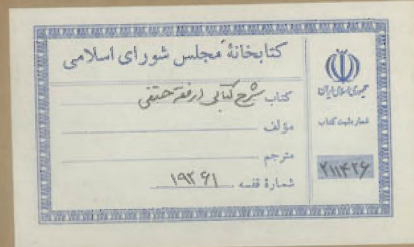 کتابخانهٔ مجلس شورای اسلامی
کتاب شرح کتابی در فقه حنفی
مؤلف
مترجم
شمارهٔ قفسه ۱۹۳۶۱
جمهوری اسلامی ایران
شماره ثبت کتاب
۲۱۱۴۲۶